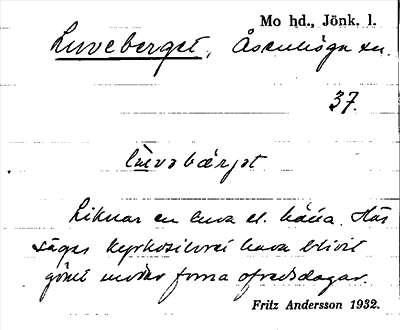 Mo hd., Jönk. l.
Luveberget, Åsenhöga sn.
37.
lùvəbærjət
Liknar en luva el. hätta. Här
säges kyrksilvret hava blivit
gömt under forna ofredsdagar.
Fritz Andersson 1932.